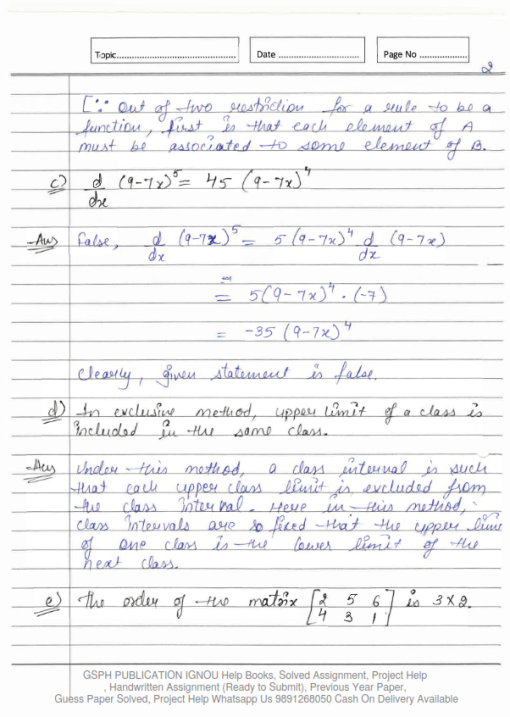 Topic.......................................... Date .............................. Page No .................
2
[∵ Out of two restriction for a rule to be a
function, first is that each element of A
must be associated to some element of B.
c) d/dx (9-7x)^5 = 45 (9-7x)^4
Ans False, d/dx (9-7x)^5 = 5 (9-7x)^4 d/dx (9-7x)
= 5(9-7x)^4 . (-7)
= -35 (9-7x)^4
Clearly, given statement is false.
d) In exclusive method, upper limit of a class is
included in the same class.
Ans Under this method, a class interval is such
that each upper class limit is excluded from
the class interval. Here in this method,
class intervals are so fixed that the upper limi
of one class is the lower limit of the
next class.
e) The order of the matrix [2 5 6
4 3 1] is 3x2.
GSPH PUBLICATION IGNOU Help Books, Solved Assignment, Project Help
, Handwritten Assignment (Ready to Submit), Previous Year Paper,
Guess Paper Solved, Project Help Whatsapp Us 9891268050 Cash On Delivery Available